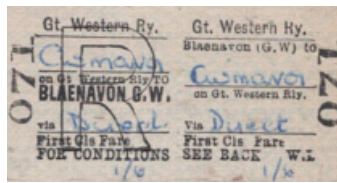 Gt. Western Ry.
Cwmavon
on Gt Western Rly TO
BLAENAVON G.W.
via Direct
First Cls Fare
FOR CONDITIONS
1/6
071
R
Gt. Western Ry.
Blaenavon (G.W) to
Cwmavon
on Gt. Western Rly.
Via Direct
First Cls Fare
SEE BACK W.L
1/6
071